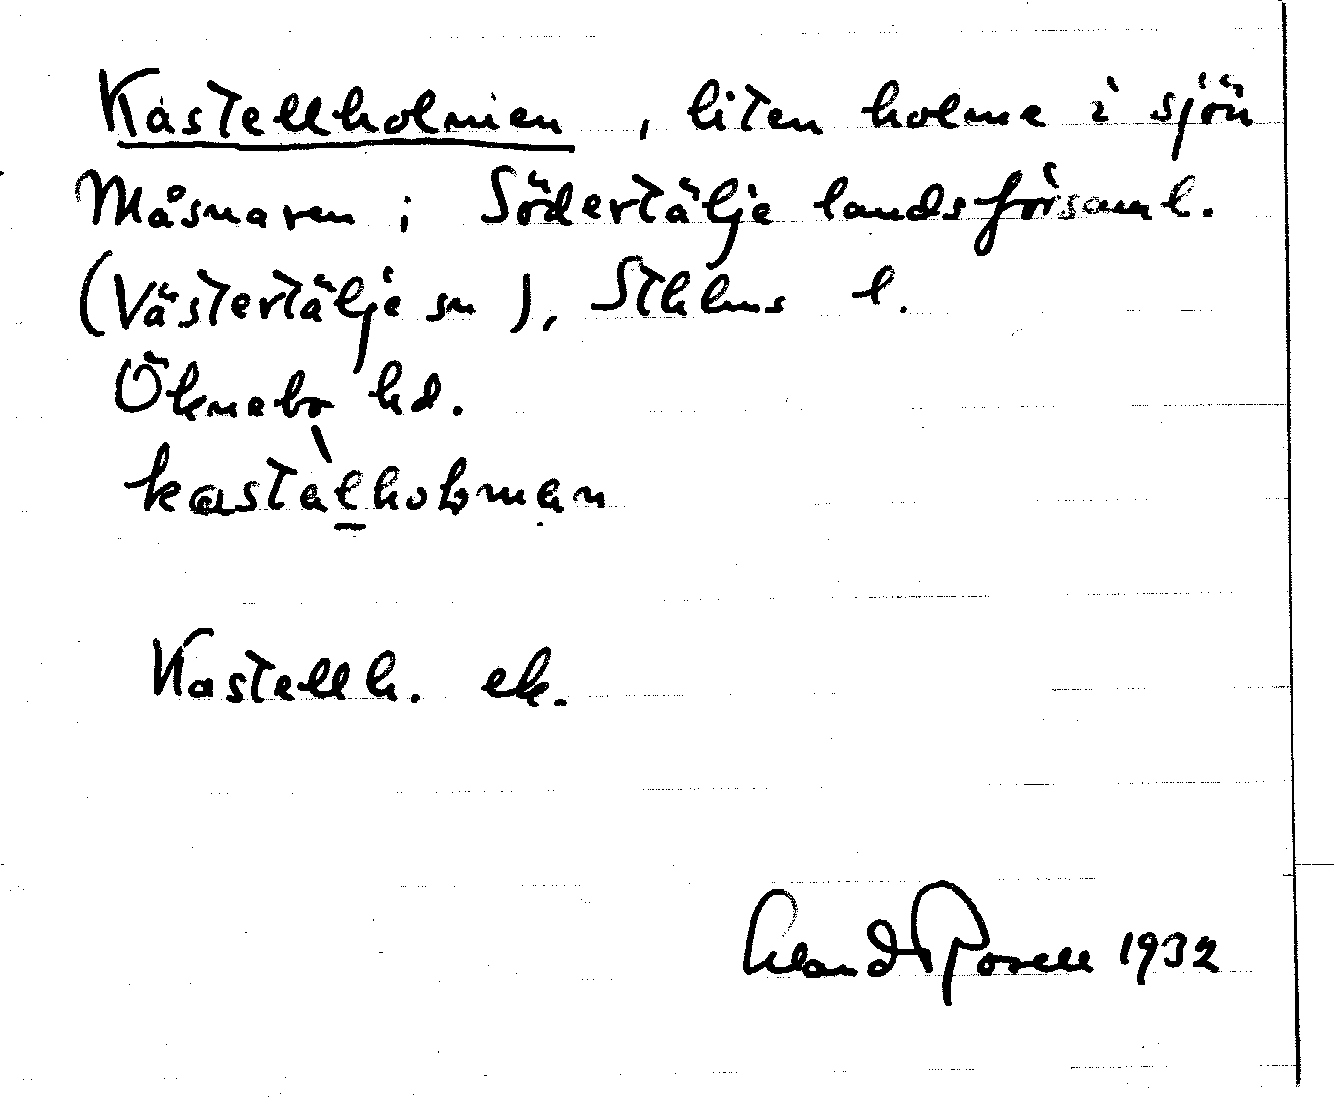 Kastellholmen, liten holme i sjön
Måsnaren i Södertälje landsförsaml.
(Västertälje sn), Sthlms l.
Öknebo hd.
kastàlholman
Kastellh. ek.
Rosell 1932